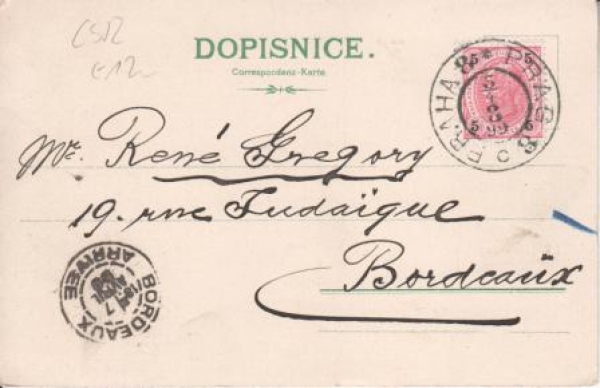 CS12
E12
DOPISNICE.
Correspondenz-Karte.
PRAHA PRAG 8
Mr. René Gregory
19. rue Judaïque
Bordeaux
BORDEAUX
ARRIVÉE